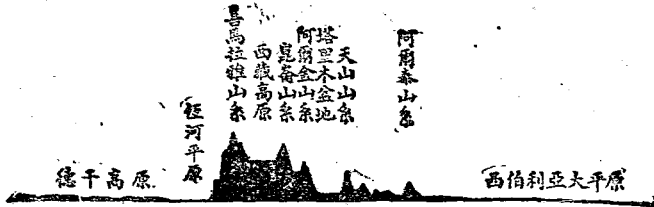 德干高原
恆河平原
喜馬拉雅山系
西藏高原
崑崙山系
阿爾金山系
塔里木盆地
天山山系
阿爾泰山系
西伯利亞大平原